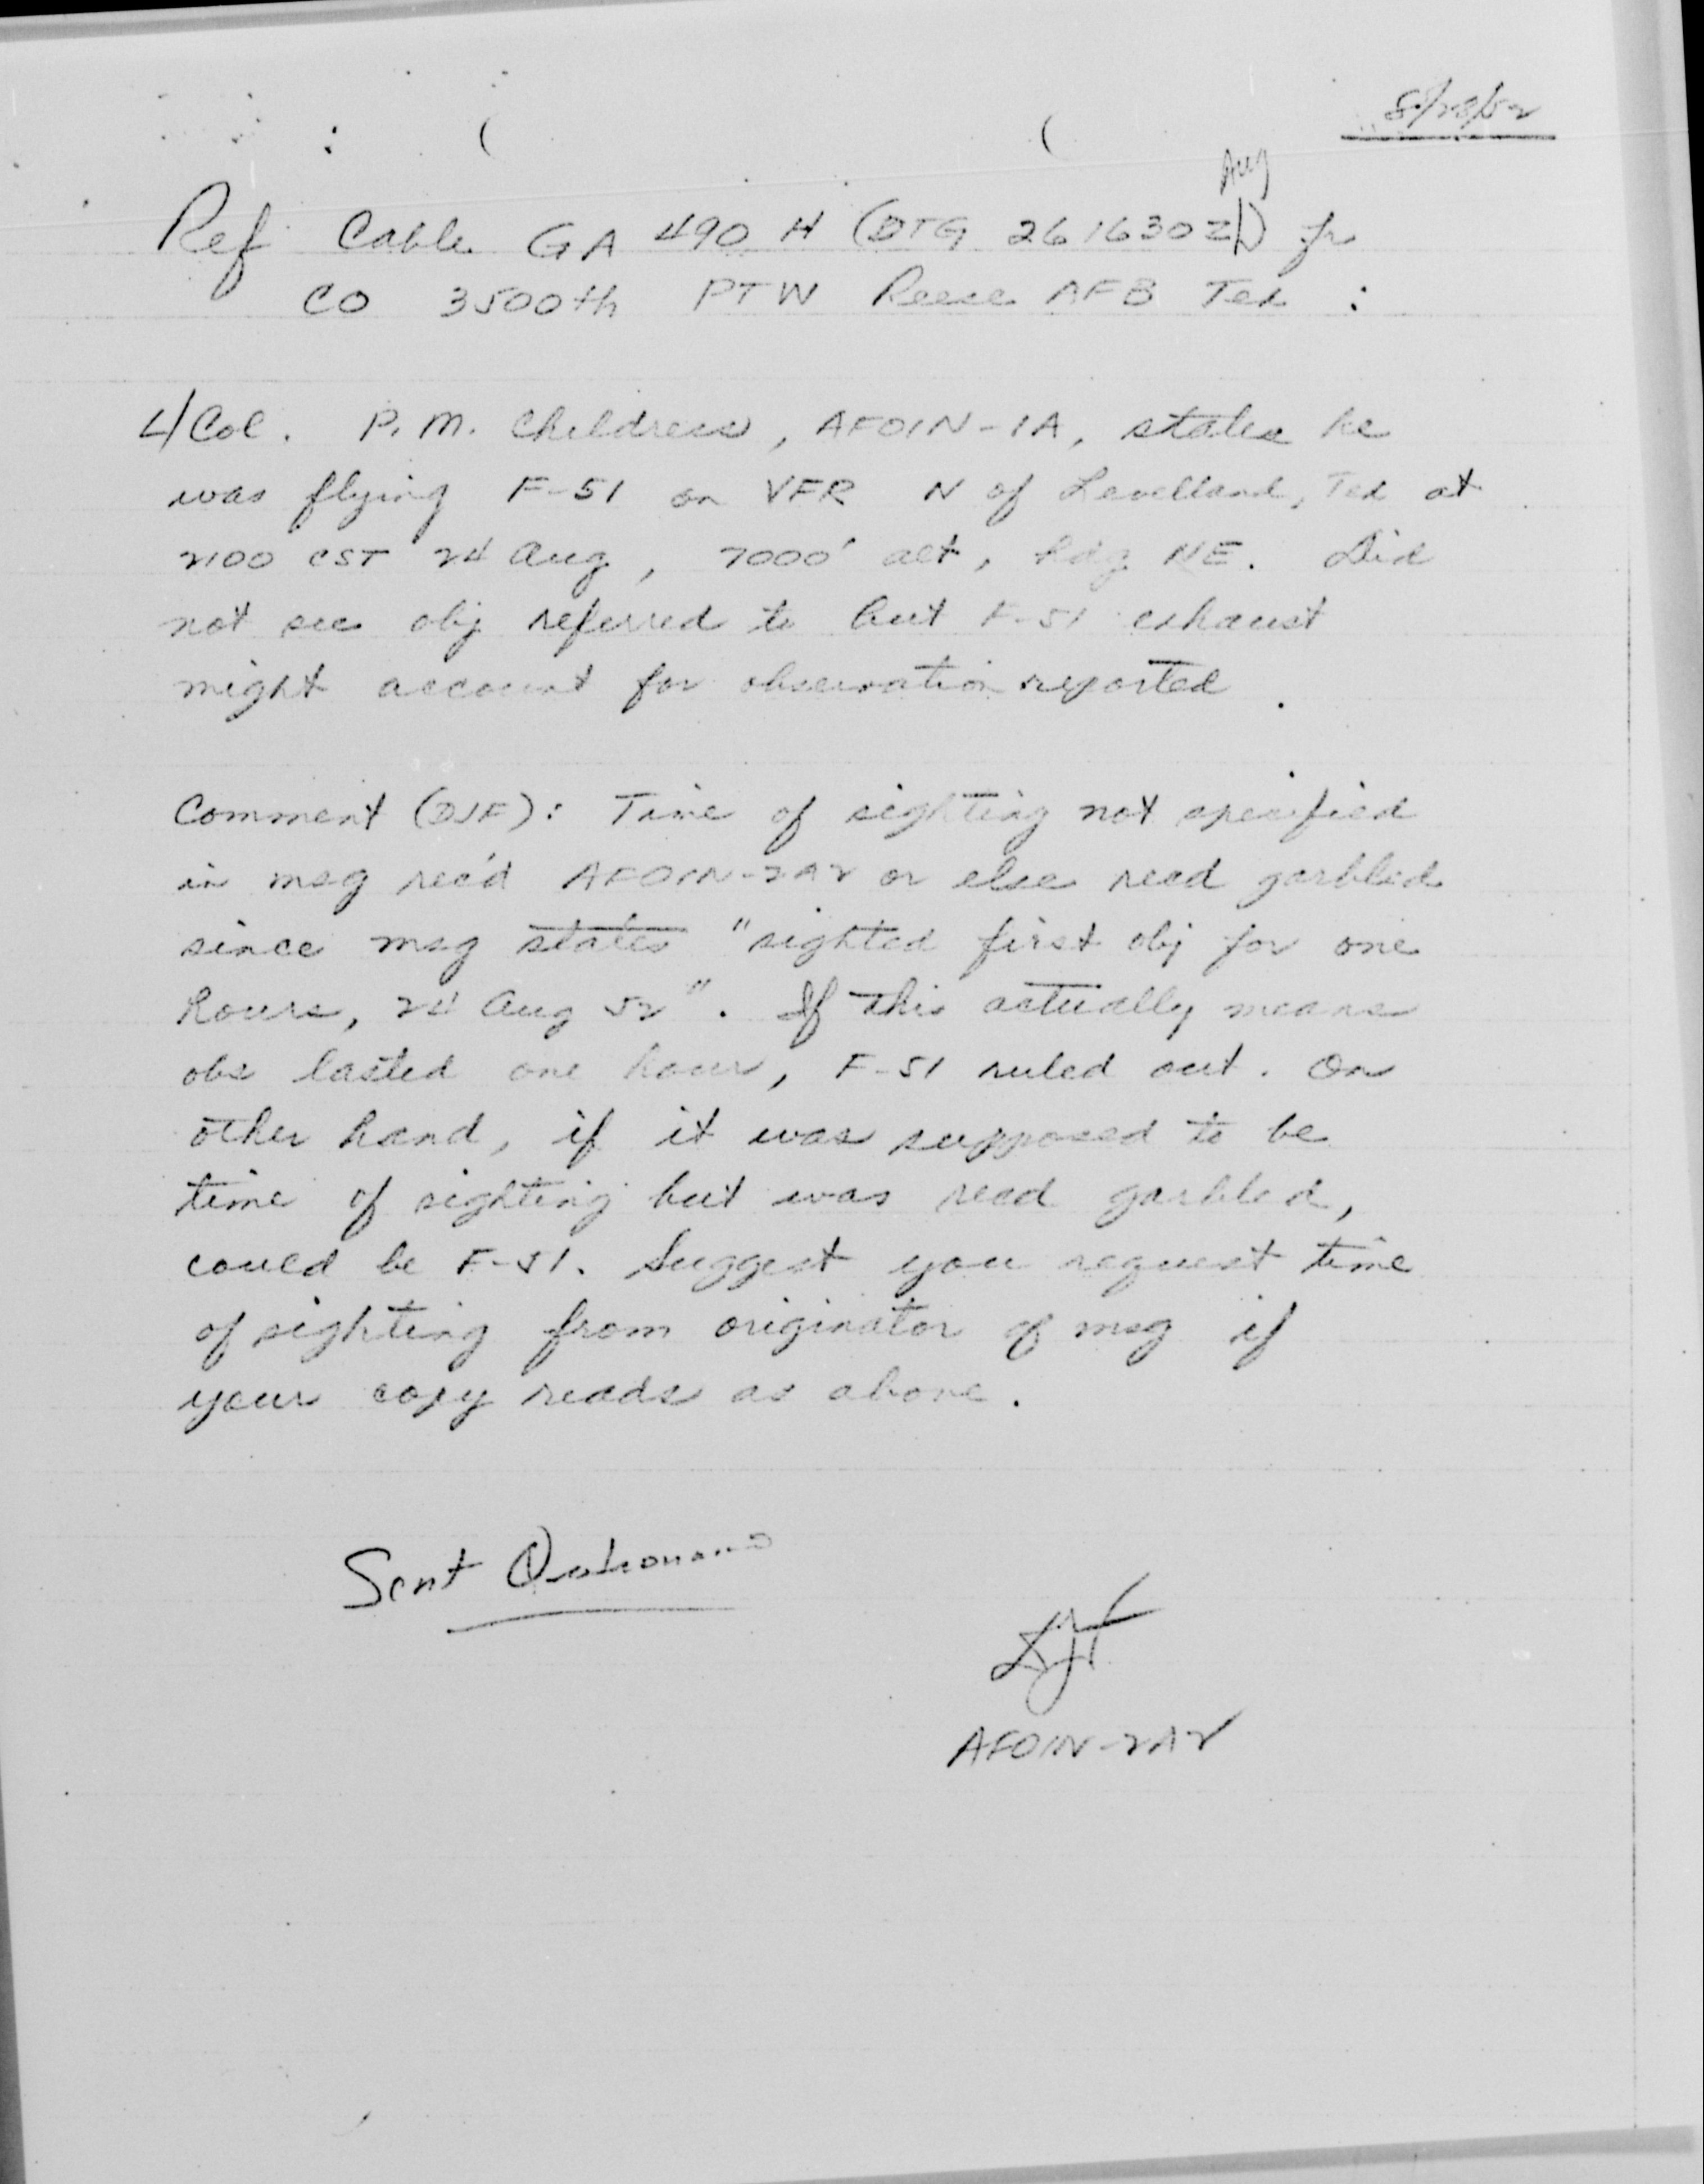 8/28/52
Aug
Ref Cable GA 490 H (DTG 261630Z) fr
CO 3500th PTW Reese AFB Tex :
L/Col. P. M. Childress, AFOIN-1A, states he
was flying F-51 on VFR N of Levelland, Tex at
2100 CST 24 Aug, 7000' alt, hdg NE. Did
not see obj referred to but F-51 exhaust
might account for observation reported.
Comment (DJF): Time of sighting not specified
in msg rec'd AFOIN-2A2 or else recd garbled
since msg states "sighted first obj for one
hours, 24 Aug 52". If this actually means
obs lasted one hour, F-51 ruled out. On
other hand, if it was supposed to be
time of sighting but was recd garbled,
could be F-51. Suggest you request time
of sighting from originator of msg if
your copy reads as above.
Sent
DJF
AFOIN-2A2